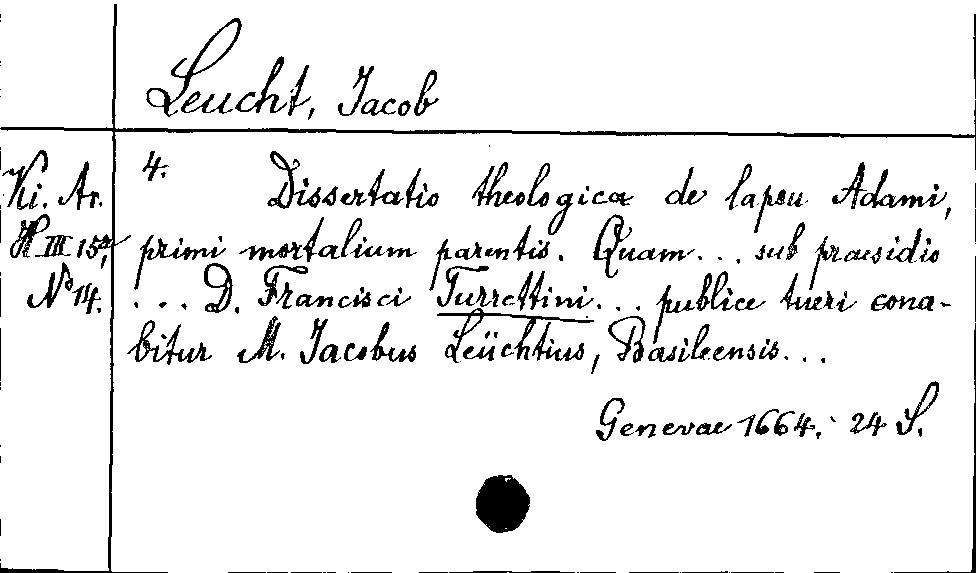 Leucht, Jacob
4. Dissertatio theologica de lapsu Adami,
Ki. Ar.
H III 15a,
No 14.
primi mortalium parentis. Quam... sub praesidio
... D. Francisci Turrettini... publice tueri cona-
bitur M. Jacobus Leüchtius, Basileensis...
Genevae 1664. 24 S.